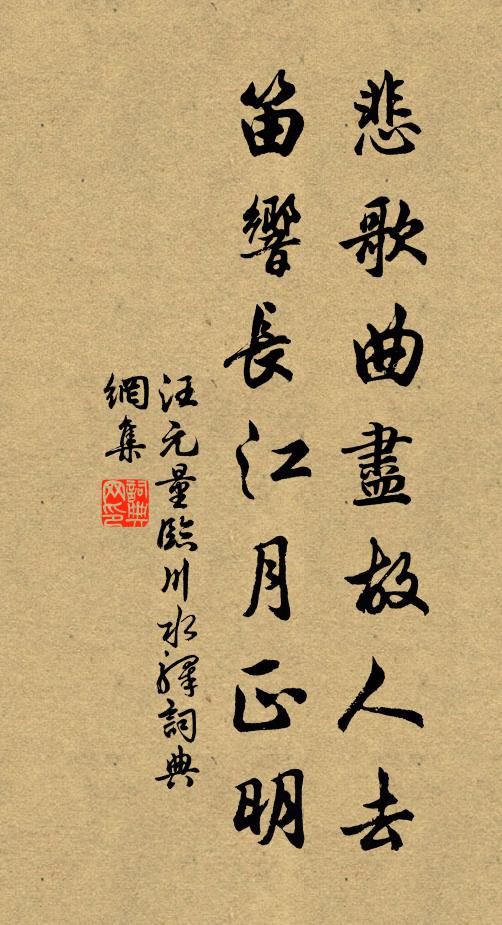 悲歌曲盡故人去
笛響長江月正明
汪元量臨川水驛詞典
網集
詞典
網印